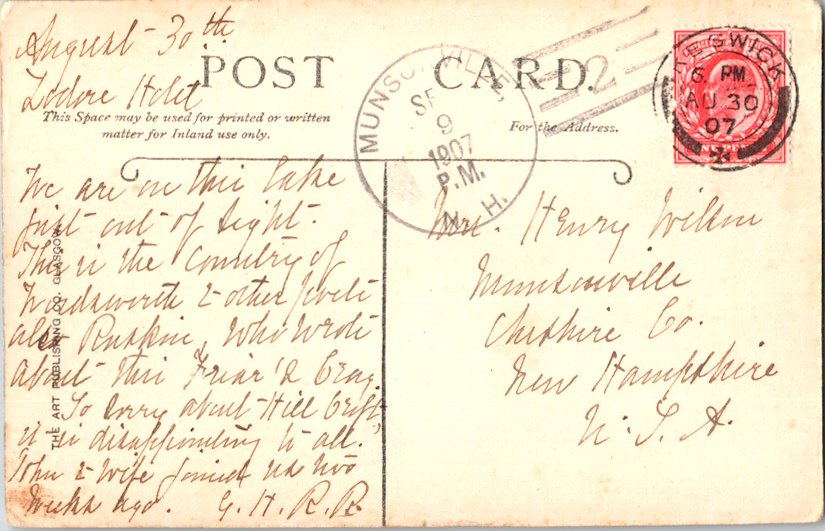 August 30th
Lodore Hotel
POST CARD.
This Space may be used for printed or written
matter for Inland use only.
For the Address.
MUNSONVILLE
SEP
9
1907
P.M.
N. H.
2
KESWICK
6 PM
AU 30
07
We are on this lake
just out of sight.
This is the country of
Wordsworth & other poets
also Ruskin, who wrote
about this Friar's Crag.
So sorry about Hill Crest,
it is disappointing to all.
John & wife joined us two
weeks ago. G. H. R. R.
THE ART PUBLISHING CO. GLASGOW.
Mrs. Henry Wilson
Munsonville
Cheshire Co.
New Hampshire
U. S. A.